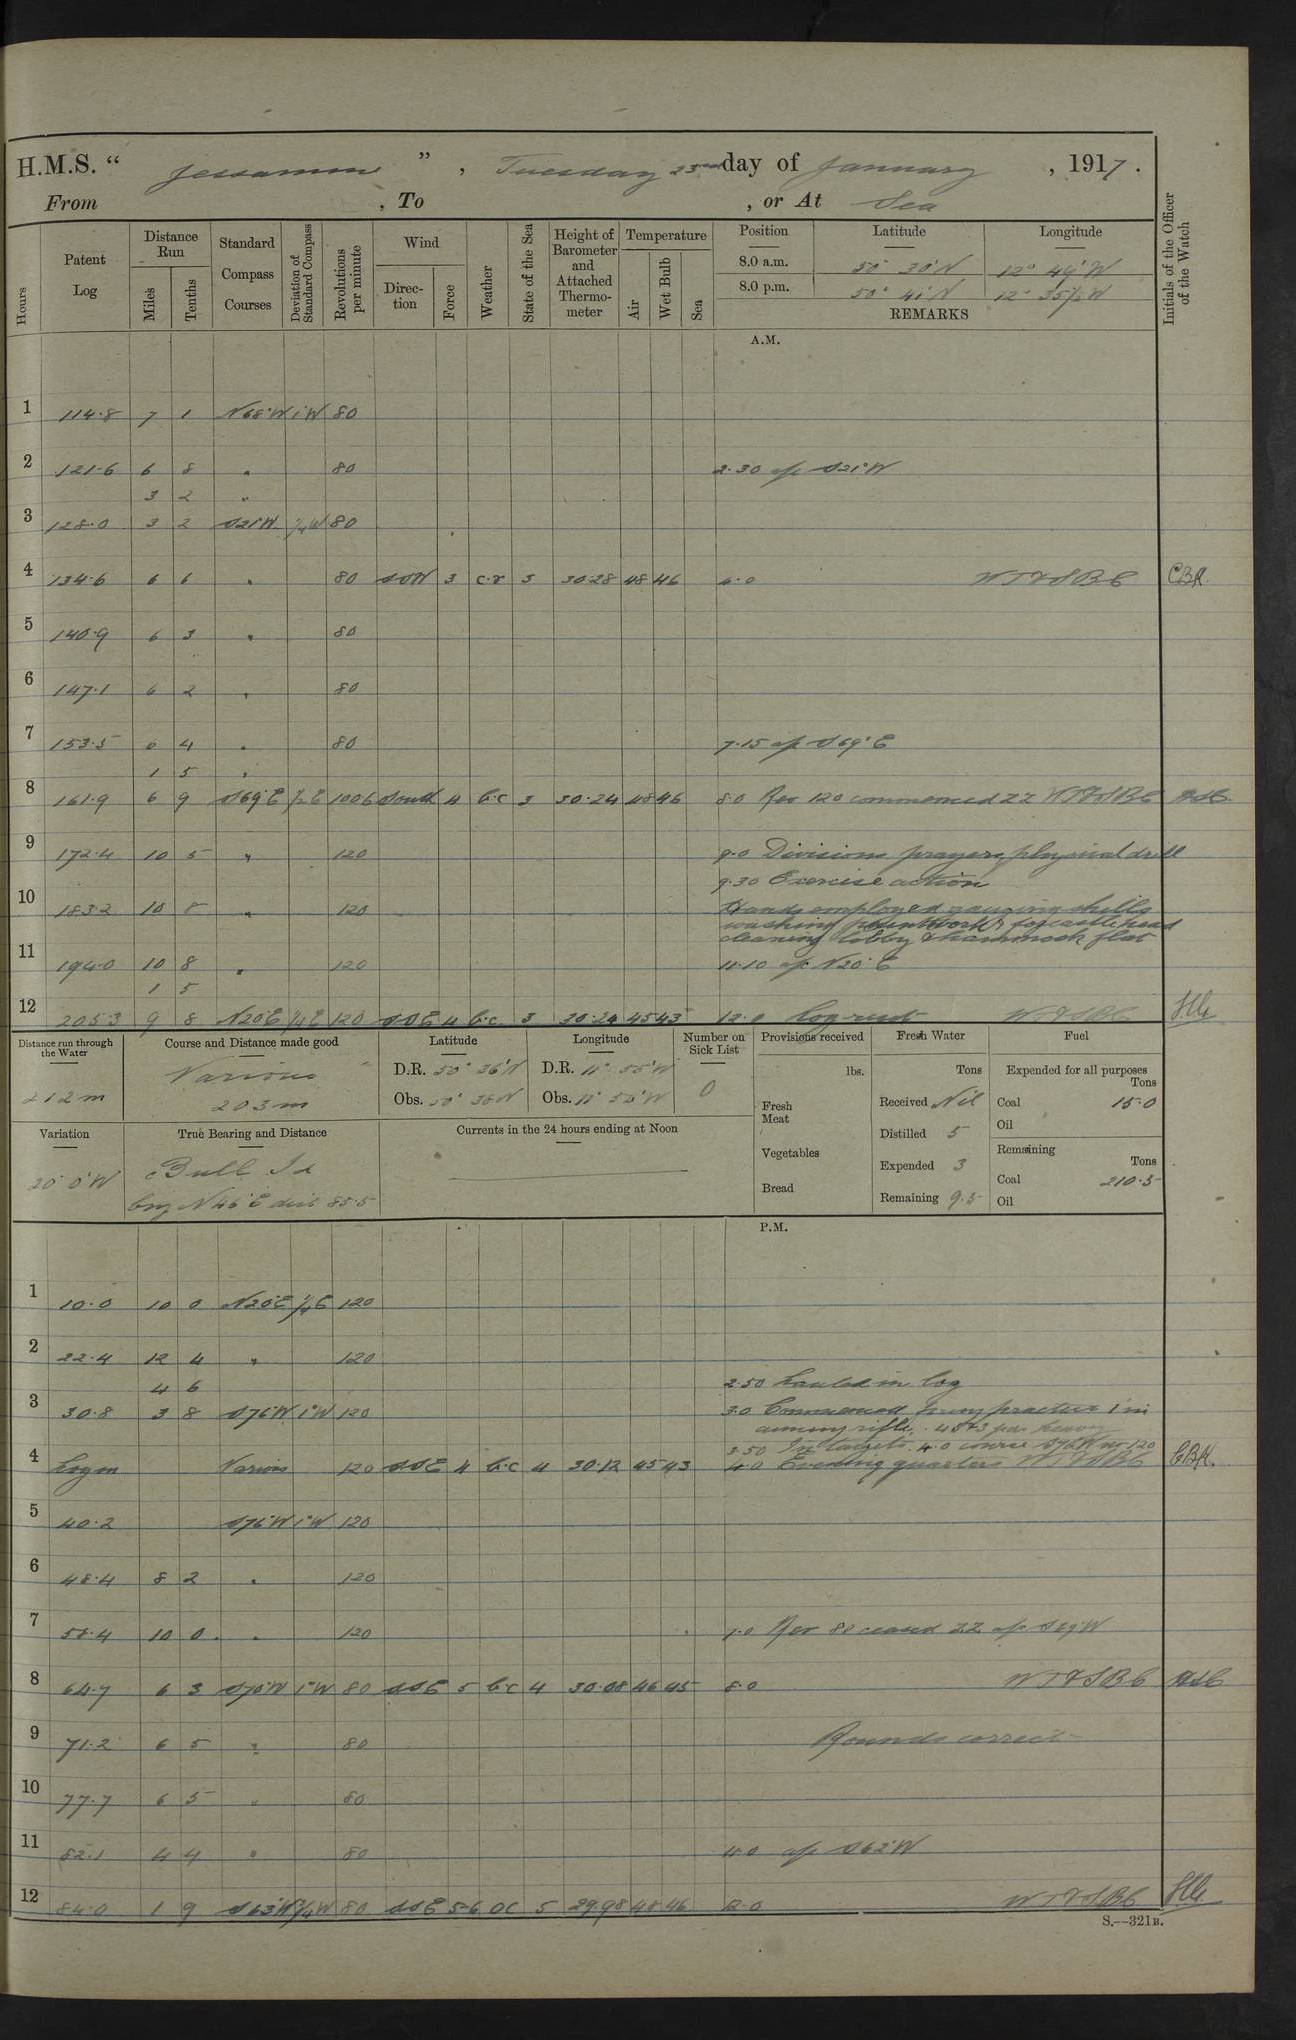 H.M.S. “ Jessamine ” , Tuesday 23rd day of January , 1917.
From , To , or At Sea
Hours Patent Log Distance Run Miles Tenths Standard Compass Courses Deviation of Standard Compass Revolutions per minute Wind Direction Force Weather State of the Sea Height of Barometer and Attached Thermometer Temperature Air Wet Bulb Sea Position Latitude Longitude Initials of the Officer of the Watch
8.0 a.m. 50° 30'N 12° 49'W
8.0 p.m. 50° 41'N 12° 35½W
REMARKS
A.M.
1 114.8 7 1 N68°W 1°W 80
2 121.6 6 8 " 80 2.30 a/c S21°W
3 2 "
3 128.0 3 2 S21°W ¼W 80
4 134.6 6 6 " 80 SSW 3 c.r 3 30.28 48 46 4.0 WT&SBC CBR.
5 140.9 6 3 " 80
6 147.1 6 2 " 80
7 153.5 6 4 " 80 7.15 a/c S69°E
1 5 "
8 161.9 6 9 S69°E ½E 100.6 South 4 b.c 3 30.24 48 46 8.0 Rev 120 commenced ZZ WT&SBC
9 172.4 10 5 " 120 9.0 Divisions prayers, physical drill
9.30 Exercise action
10 183.2 10 8 " 120 Hands employed gauging shells
washing paintwork & forecastle head
cleaning lobby & hammock flat
11 194.0 10 8 " 120 11.10 a/c N20°E
1 5
12 205.3 9 8 N20°E ¼E 120 SSE 4 b.c. 3 30.24 45 43 12.0 Log reset WT&SBC
Distance run through the Water 212m
Course and Distance made good Various 203m
Latitude D.R. 50° 36'N Obs. 50° 38'N
Longitude D.R. 11° 55'W Obs. 11° 50'W
Number on Sick List 0
Provisions received lbs. Fresh Meat Vegetables Bread
Fresh Water Tons Received Nil Distilled 5 Expended 3 Remaining 9.5
Fuel Expended for all purposes Tons Coal 15.0 Oil
Remaining Tons Coal 210.5 Oil
Variation 20° 0'W
True Bearing and Distance Bull Id
brg N46°E dist 85.5
Currents in the 24 hours ending at Noon
P.M.
1 10.0 10 0 N20°E ¼E 120
2 22.4 12 4 " 120
4 6 2.50 hauled in log
3 30.8 3 8 S76°W 1°W 120 3.0 Commenced firing practice 1 in
aiming rifle.
3.50 In targets. 4.0 course S76W rev 120
4 Log in Various 120 SSE 4 b.c 4 30.12 45 43 4.0 Evening quarters WT&SBC CBR.
5 40.2 S76°W 1°W 120
6 48.4 8 2 " 120
7 58.4 10 0 " 120 7.0 Rev 80 ceased ZZ a/c S69°W
8 64.7 6 3 S70°W 1°W 80 SSE 5 b.c 4 30.08 46 45 8.0 WT&SBC
9 71.2 6 5 " 80 Rounds correct
10 77.7 6 5 " 80
11 82.1 4 4 " 80 11.0 a/c S62°W
12 84.0 1 9 S63°W ¾W 80 SSE 5-6 OC 5 29.98 48 46 12.0 WT&SBC
S.—321B.